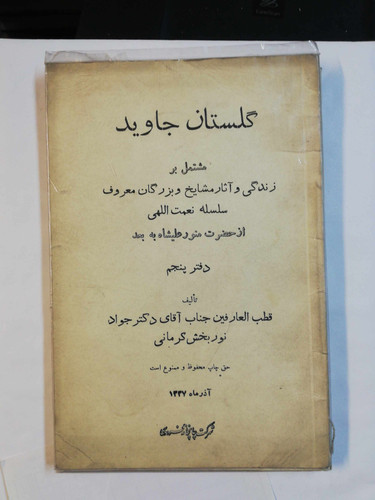 گلستان جاوید
مشتمل بر
زندگی و آثار مشایخ و بزرگان معروف
سلسله نعمت اللهی
از حضرت منورعلیشاه به بعد
دفتر پنجم
تألیف
قطب العارفین جناب آقای دکتر جواد
نوربخش کرمانی
حق چاپ محفوظ و ممنوع است
آذر ماه ۱۳۳۷
شرکت چاپخانه فردوسی